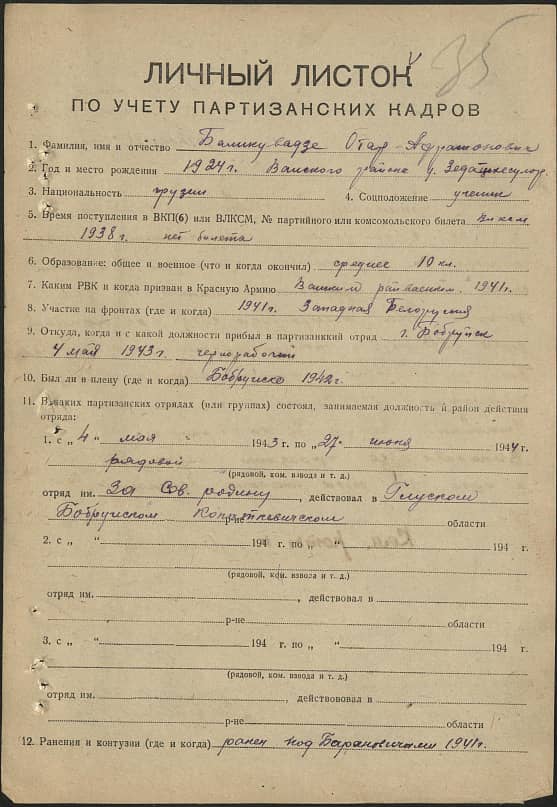 35
ЛИЧНЫЙ ЛИСТОК
ПО УЧЕТУ ПАРТИЗАНСКИХ КАДРОВ
1. Фамилия, имя и отчество Отар
2. Год и место рождения 1924 г. Ванского района
3. Национальность грузин 4. Соцположение ученик
5. Время поступления в ВКП(б) или ВЛКСМ, № партийного или комсомольского билета влксм
1938 г. нет билета
6. Образование: общее и военное (что и когда окончил) среднее 10 кл.
7. Каким РВК и когда призван в Красную Армию Ванским 1941 г.
8. Участие на фронтах (где и когда) 1941 г. Западная Белоруссия
9. Откуда, когда и с какой должности прибыл в партизанкий отряд г. Бобруйск
4 мая 1943 г. чернорабочий
10. Был ли в плену (где и когда) Бобруйске 1942 г.
11. В каких партизанских отрядах (или группах) состоял, занимаемая должность и район действия
отряда:
1. с „ 4 “ мая 1943 г. по „ 27 “ июня 1944 г.
рядовой
(рядовой, ком. взвода и т. д.)
отряд им. За Сов. родину, действовал в Глуском
Бобруйском Копаткевичском р-не области
2. с „ “ 194 г. по „ “ 194 г.
(рядовой, ком. взвода и т. д.)
отряд им. , действовал в
р-не области
3. с „ “ 194 г. по „ “ 194 г.
(рядовой, ком. взвода и т. д.)
отряд им. , действововал в
р-не области
12. Ранения и контузии (где и когда) ранен под Барановичами 1941 г.